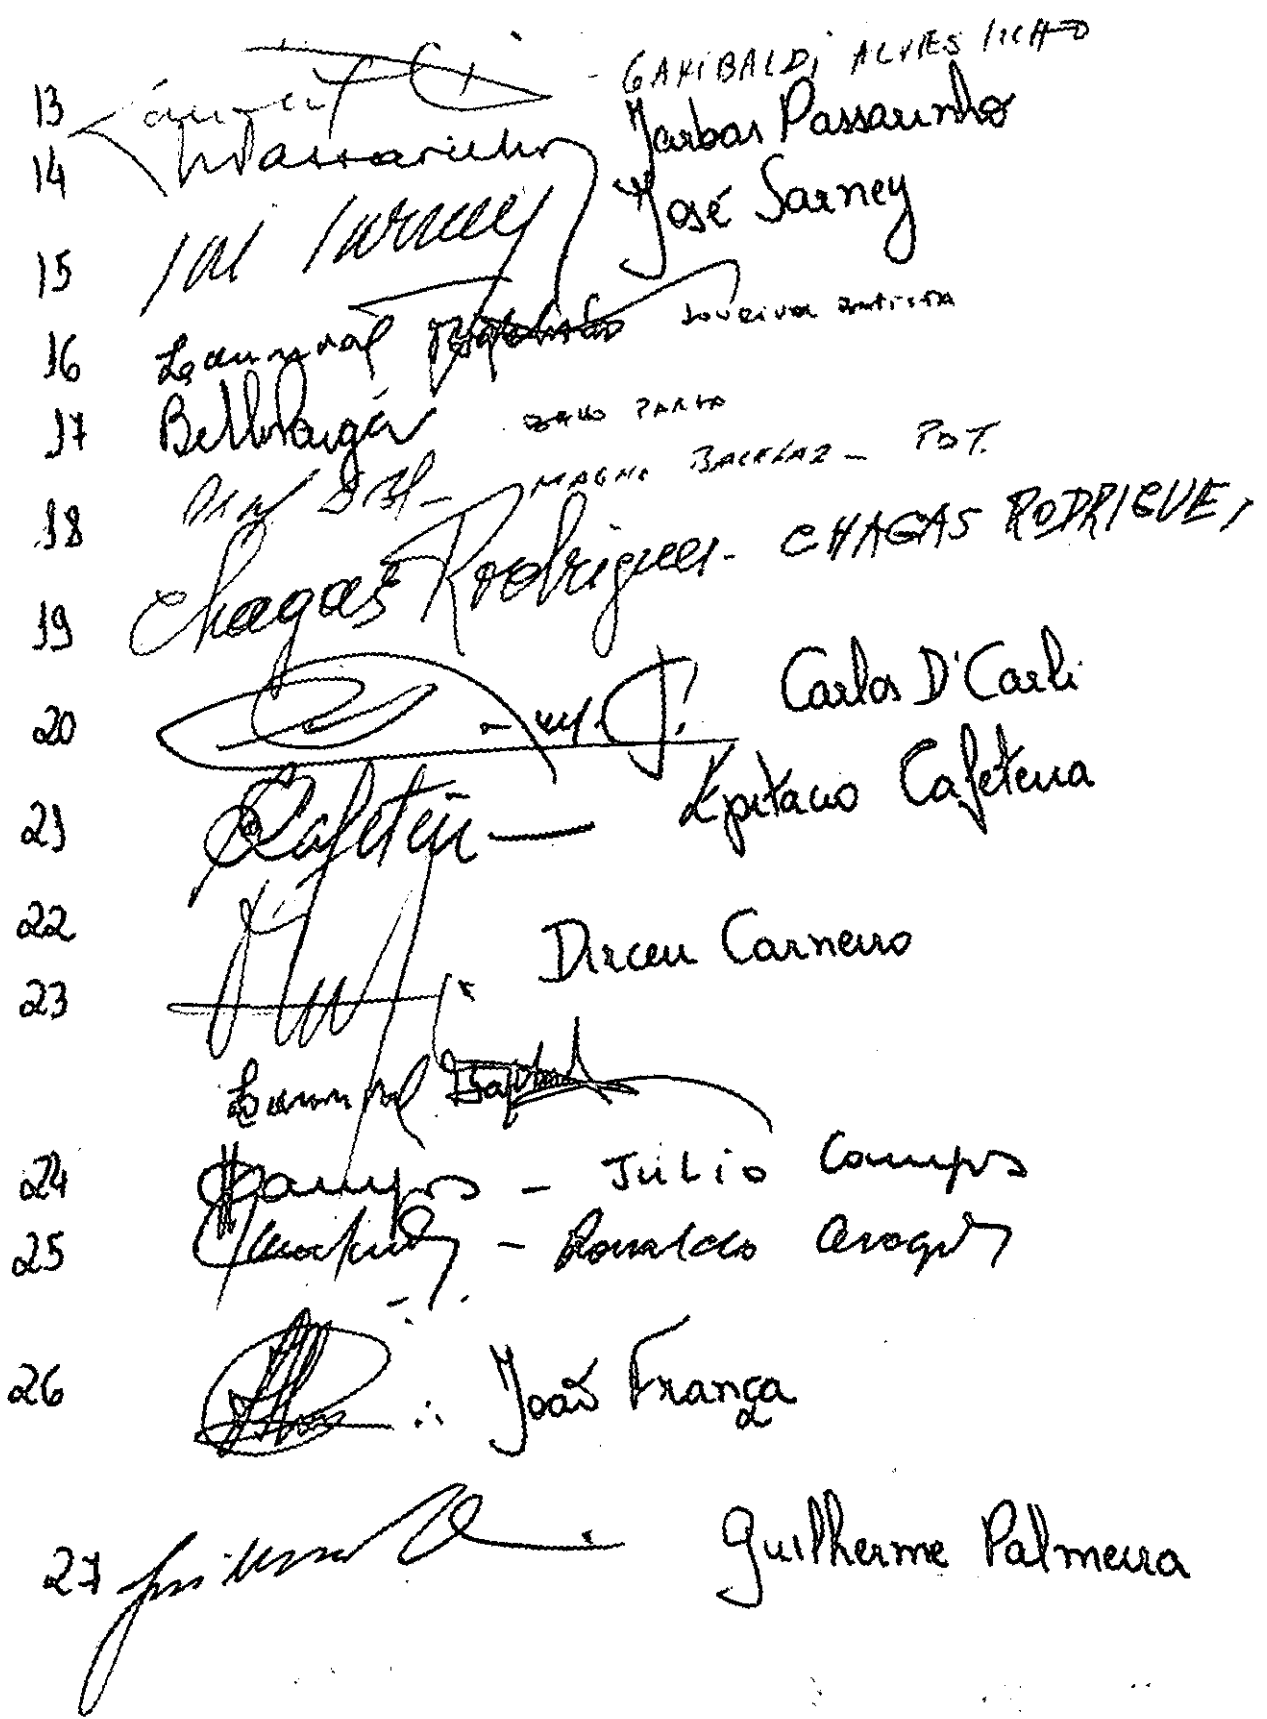 13 - GARIBALDI ALVES FILHO
14 Passarinho Jarbas Passarinho
15 José Sarney José Sarney
16 Lourival Baptista Lourival Batista
17 Bello Parga Bello PARGA
18 MAGNO BACELAR - PDT.
19 Chagas Rodrigues - CHAGAS RODRIGUES
20 Carlos D'Carli
21 Cafeteira - Epitacio Cafeteira
22
23 Dirceu Carneiro
Lourival Baptista
24 JCampos - JÚLIO Campos
25 - Ronaldo Aragão
26 João França
27 Guilherme Palmeira